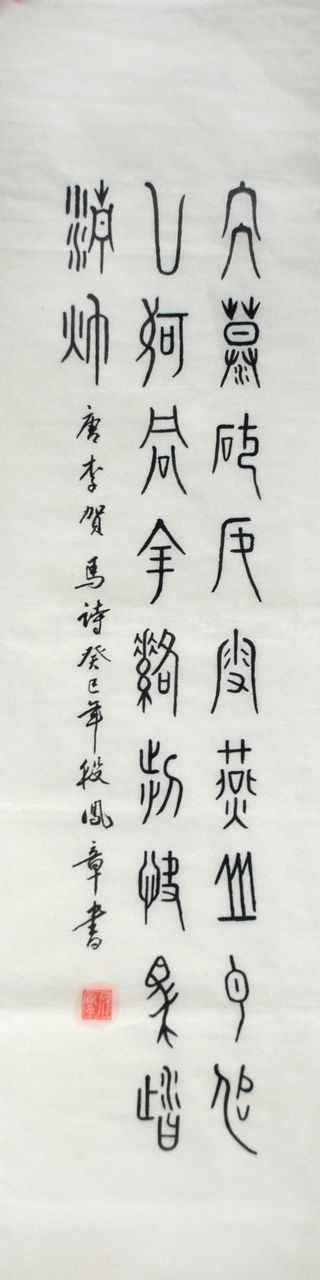 大漠沙如雪燕山月似
鉤何當金絡腦快走踏
清秋 唐李賀馬詩癸巳年段鳳章書